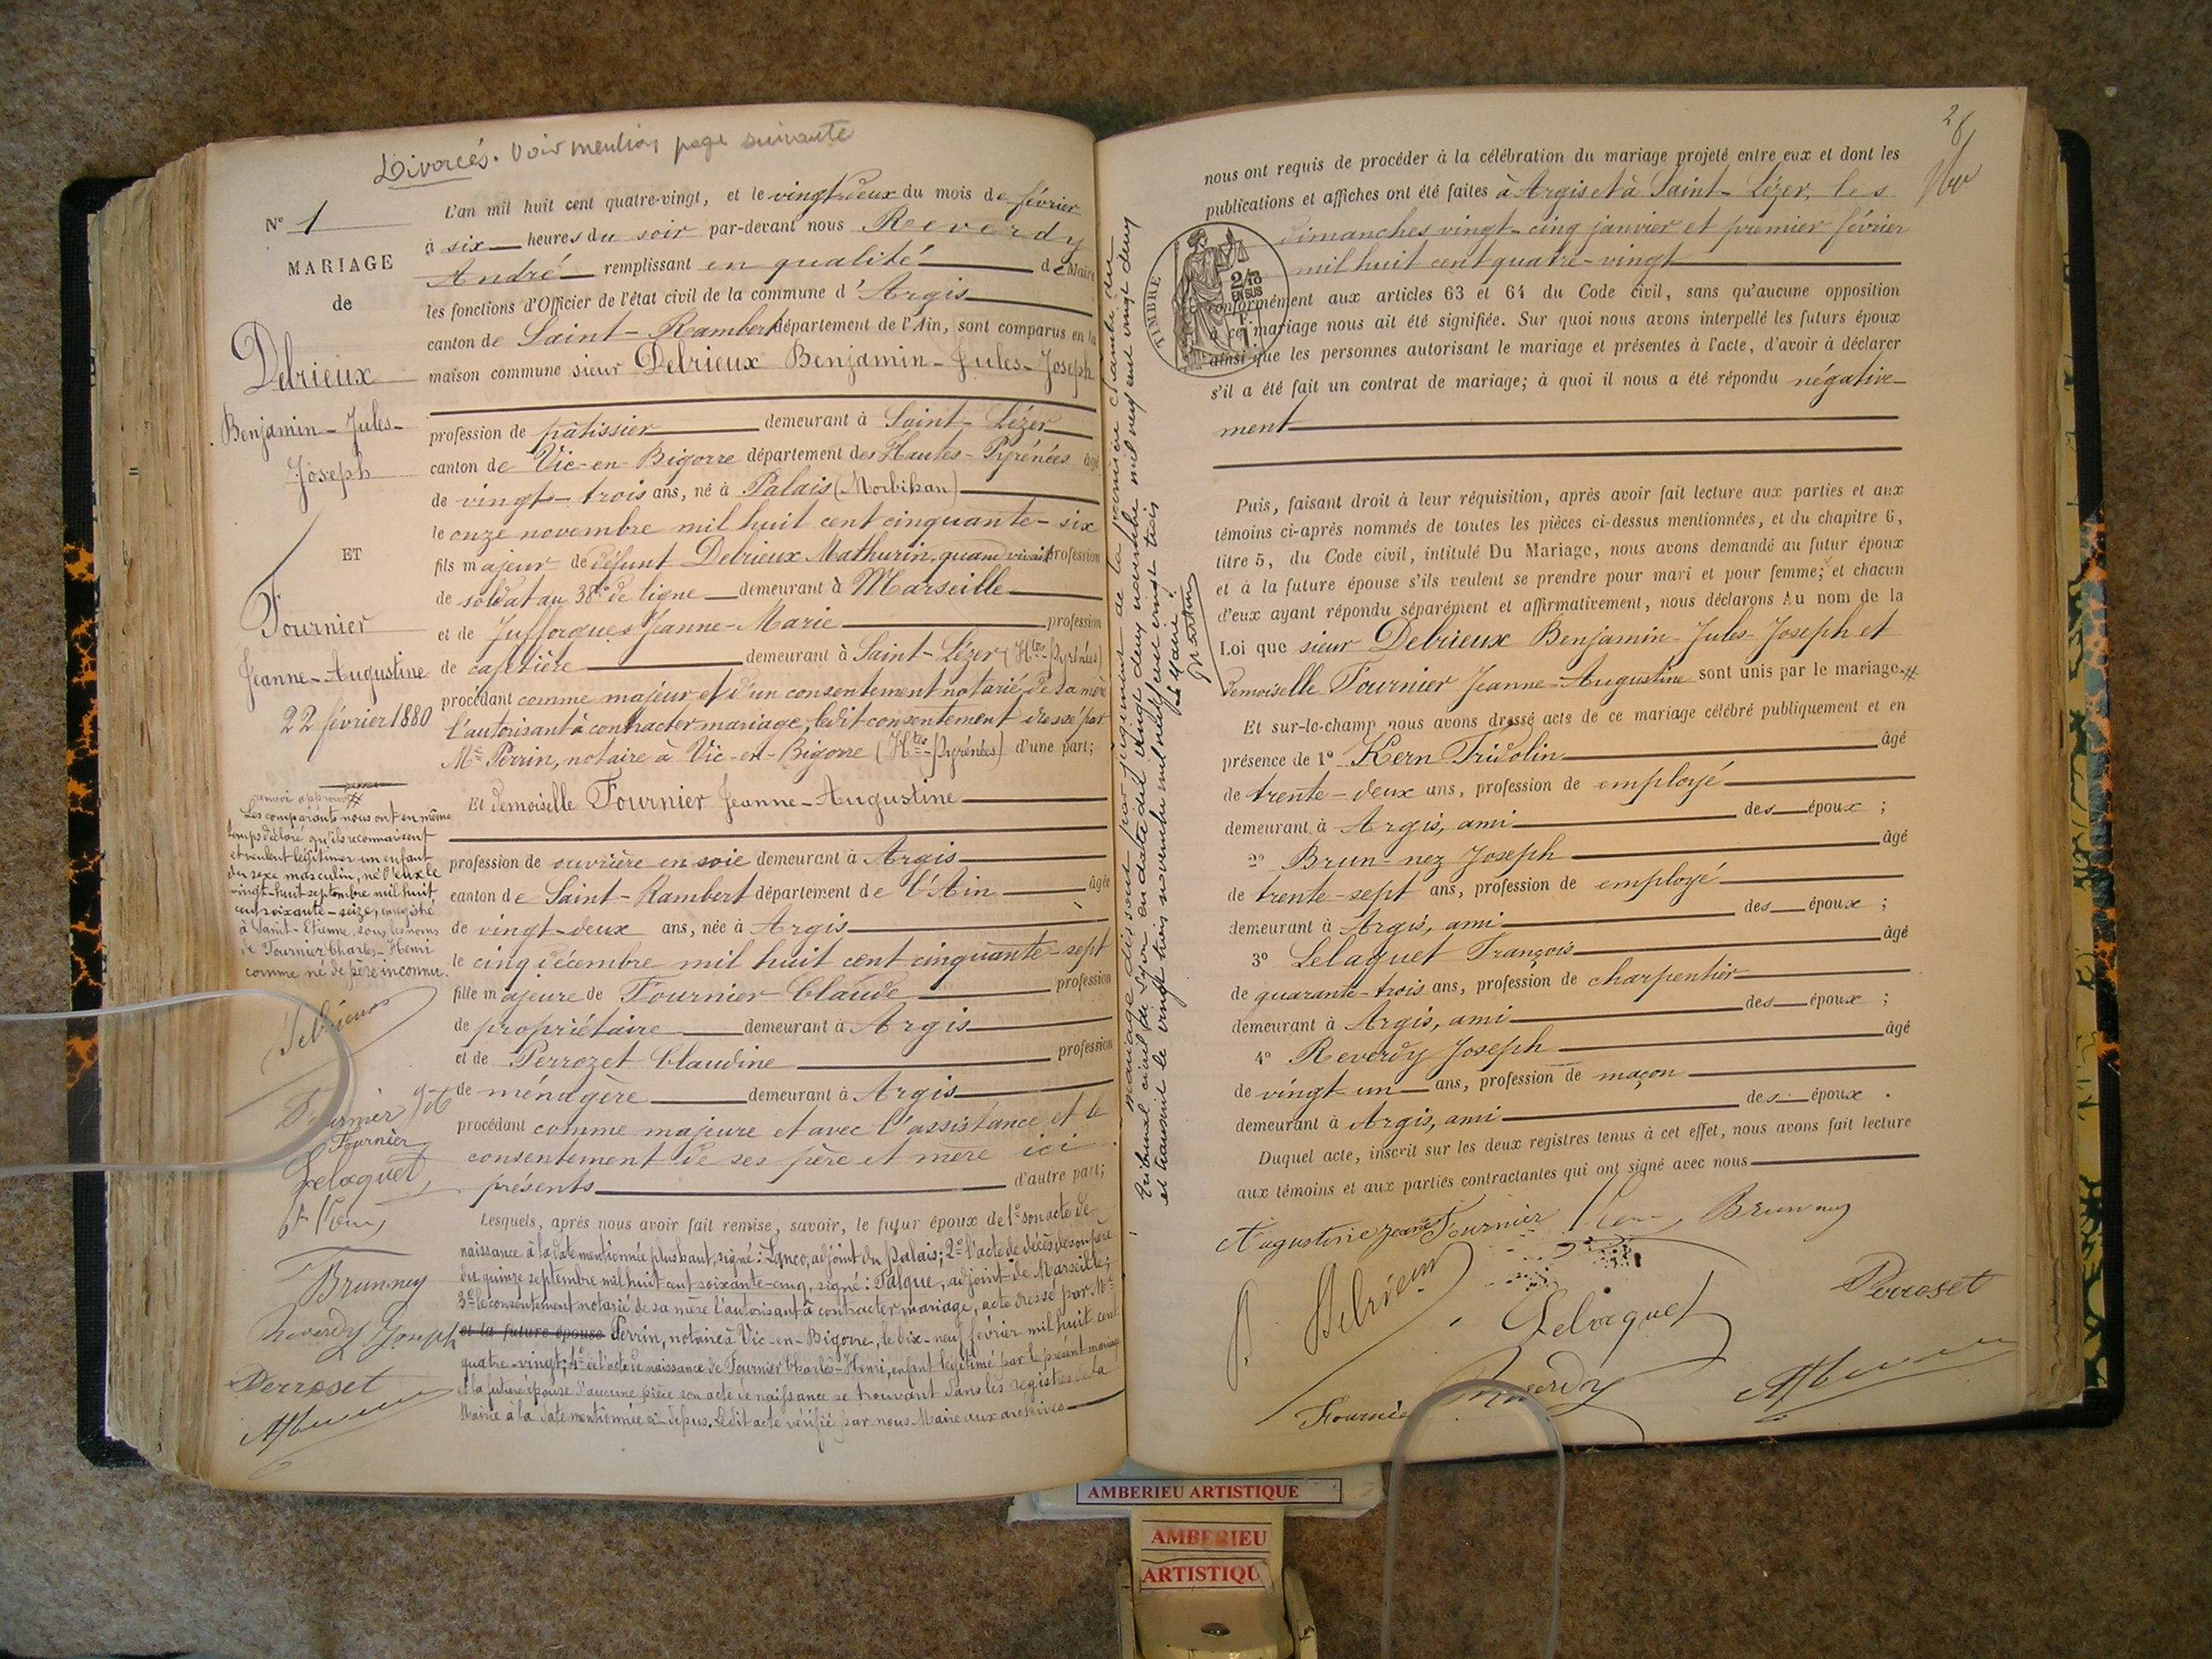 Divorcés. Voir mention page suivante
N° 1
MARIAGE
de
Debrieux
Benjamin-Jules-
Joseph
ET
Fournier
Jeanne-Augustine
22 février 1880
renvoi approuvé
Les comparants nous ont en même
temps déclaré qu'ils reconnaissent
et veulent légitimer un enfant
du sexe masculin, né d'eux le
vingt-huit septembre mil huit
cent soixante-seize, enregistré
à Saint-Etienne, sous les noms
de Fournier Charles-Henri
comme né de père inconnu.
Debrieux
Fournier
Fournier
Lelaquet
Brunnez
Reverdy Joseph
Perroset
L'an mil huit cent quatre-vingt, et le vingt-deux du mois de février
à six heures du soir par-devant nous Reverdy
André remplissant en qualité de Maire
les fonctions d'Officier de l'état civil de la commune d'Argis
canton de Saint-Rambert département de l'Ain, sont comparus en la
maison commune sieur Debrieux Benjamin-Jules-Joseph
profession de pâtissier demeurant à Saint-Lézer
canton de Vic-en-Bigorre département des Hautes-Pyrénées âgé
de vingt-trois ans, né à Palais (Morbihan)
le onze novembre mil huit cent cinquante-six
fils majeur de défunt Debrieux Mathurin, quand vivait profession
de soldat au 38e de ligne demeurant à Marseille
et de Jufforgues Jeanne-Marie profession
de cafetière demeurant à Saint-Lézer (Htes-Pyrénées)
procédant comme majeur et d'un consentement notarié de sa mère
l'autorisant à contracter mariage, ledit consentement dressé par
Me Perrin, notaire à Vic-en-Bigorre (Htes-Pyrénées) d'une part;
Et demoiselle Fournier Jeanne-Augustine
profession de ouvrière en soie demeurant à Argis
canton de Saint-Rambert département de l'Ain âgée
de vingt-deux ans, née à Argis
le cinq décembre mil huit cent cinquante-sept
fille majeure de Fournier Claude profession
de propriétaire demeurant à Argis
et de Perrozet Claudine profession
de ménagère demeurant à Argis
procédant comme majeure et avec l'assistance et le
consentement de ses père et mère ici
présents d'autre part;
Lesquels, après nous avoir fait remise, savoir, le futur époux de 1° son acte de
naissance à la date mentionnée plus haut, signé: Lanco, adjoint du Palais; 2° l'acte de décès de son père
du quinze septembre mil huit cent soixante-cinq, signé: Palque, adjoint de Marseille;
3° le consentement notarié de sa mère l'autorisant à contracter mariage, acte dressé par Me
et la future épouse Perrin, notaire à Vic-en-Bigorre, le dix-neuf février mil huit cent
quatre-vingt; 4° et l'acte de naissance de Fournier Charles-Henri, enfant légitimé par le présent mariage
et la future épouse d'aucune pièce son acte de naissance se trouvant dans les registres de la
Mairie à la date mentionnée ci-dessus. Ledit acte vérifié par nous Maire aux archives
mariage dissout par jugement de la première chambre du
tribunal civil de Lyon en date du vingt deux novembre mil neuf cent vingt deux
et transcrit le vingt trois novembre mil neuf cent vingt trois
Le Maire
28
nous ont requis de procéder à la célébration du mariage projeté entre eux et dont les
publications et affiches ont été faites à Argis et à Saint-Lézer, les
dimanches vingt-cinq janvier et premier février
mil huit cent quatre-vingt
TIMBRE
2/10
EN SUS
conformément aux articles 63 et 64 du Code civil, sans qu'aucune opposition
à ce mariage nous ait été signifiée. Sur quoi nous avons interpellé les futurs époux
ainsi que les personnes autorisant le mariage et présentes à l'acte, d'avoir à déclarer
s'il a été fait un contrat de mariage; à quoi il nous a été répondu négative-
ment
Puis, faisant droit à leur réquisition, après avoir fait lecture aux parties et aux
témoins ci-après nommés de toutes les pièces ci-dessus mentionnées, et du chapitre 6,
titre 5, du Code civil, intitulé Du Mariage, nous avons demandé au futur époux
et à la future épouse s'ils veulent se prendre pour mari et pour femme; et chacun
d'eux ayant répondu séparément et affirmativement, nous déclarons Au nom de la
Loi que sieur Debrieux Benjamin-Jules-Joseph et
demoiselle Fournier Jeanne-Augustine sont unis par le mariage.
Et sur-le-champ nous avons dressé acte de ce mariage célébré publiquement et en
présence de 1° Kern Fridolin âgé
de trente-deux ans, profession de employé
demeurant à Argis, ami des époux;
2° Brun-nez Joseph âgé
de trente-sept ans, profession de employé
demeurant à Argis, ami des époux;
3° Lelaquet François âgé
de quarante-trois ans, profession de charpentier
demeurant à Argis, ami des époux;
4° Reverdy Joseph âgé
de vingt-un ans, profession de maçon
demeurant à Argis, ami des époux.
Duquel acte, inscrit sur les deux registres tenus à cet effet, nous avons fait lecture
aux témoins et aux parties contractantes qui ont signé avec nous
Augustine Jeanne Fournier Kern Brunnez
B. Debrieux Lelaquet Perroset
Fournier Reverdy
AMBERIEU ARTISTIQUE
AMBERIEU
ARTISTIQU